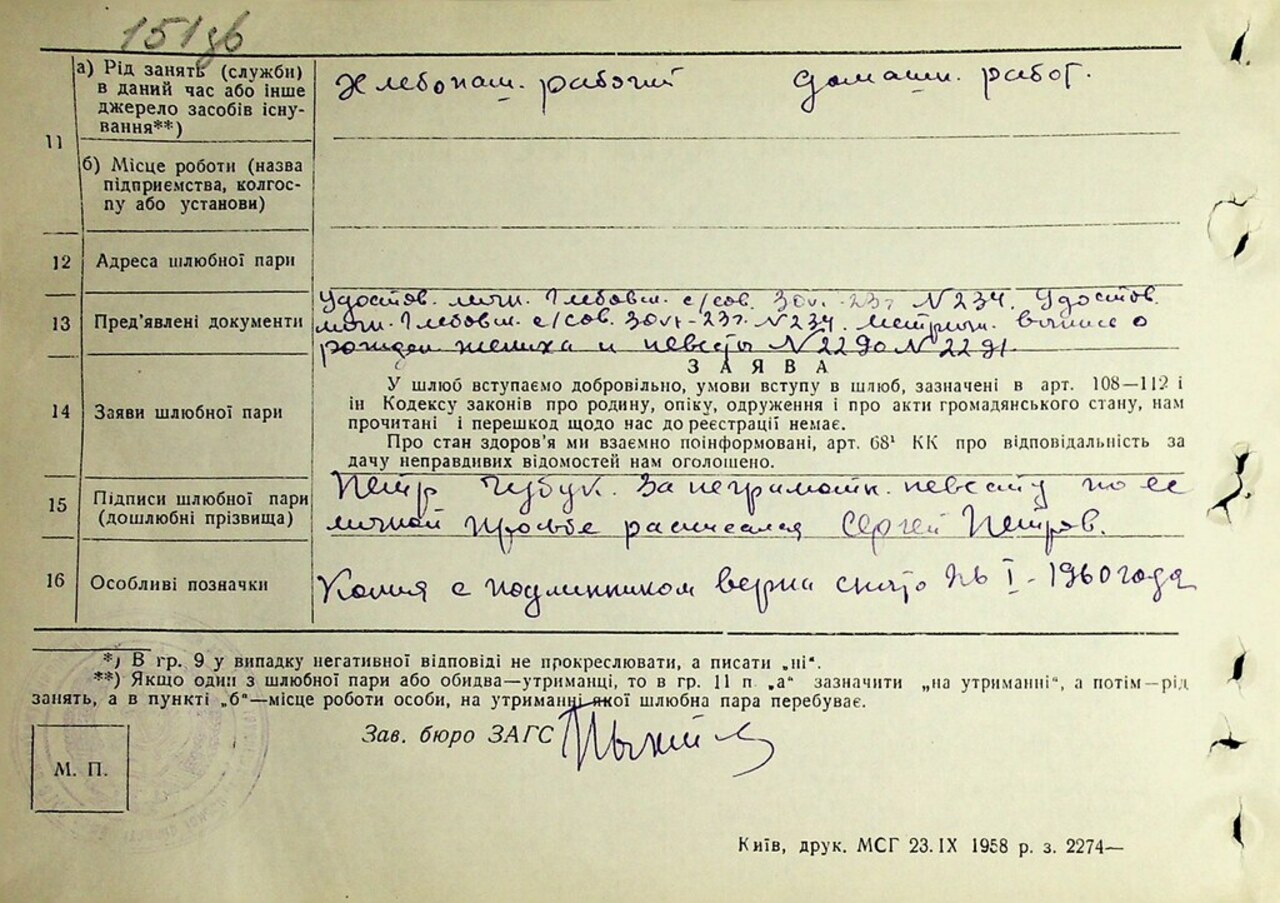 151 зв
11
а) Рід занять (служби)
в даний час або інше
джерело засобів існу-
вання**)
Хлебопаш. рабочий Домашн. работ.
б) Місце роботи (назва
підприємства, колгос-
пу або установи)
12 Адреса шлюбної пари
13 Пред'явлені документи
Удостов. личн. Глебовск. с/сов. 23г N 234. Удостов.
личн. Глебовск. с/сов. 23г. N 234. Метричн. выписе о
рожден жениха и невесты N 2290 N 2291.
14 Заяви шлюбної пари
ЗАЯВА
У шлюб вступаємо добровільно, умови вступу в шлюб, зазначені в арт. 108—112 і
ін Кодексу законів про родину, опіку, одруження і про акти громадянського стану, нам
прочитані і перешкод щодо нас до реєстрації немає.
Про стан здоров'я ми взаємно поінформовані, арт. 68¹ КК про відповідальність за
дачу неправдивих відомостей нам оголошено.
15 Підписи шлюбної пари
(дошлюбні прізвища)
Петр Чубук. За неграмотн. невесту по ее
личной просьбе расписался Сергей Петров.
16 Особливі позначки
Копия с подлинником верна снято I - 1960 года
*) В гр. 9 у випадку негативної відповіді не прокреслювати, а писати „ні“.
**) Якщо один з шлюбної пари або обидва—утриманці, то в гр. 11 п „а“ зазначити „на утриманні“, а потім—рід
занять, а в пункті „б“—місце роботи особи, на утриманні якої шлюбна пара перебуває.
Зав. бюро ЗАГС
М. П.
Київ, друк. МСГ 23.IX 1958 р. з. 2274—